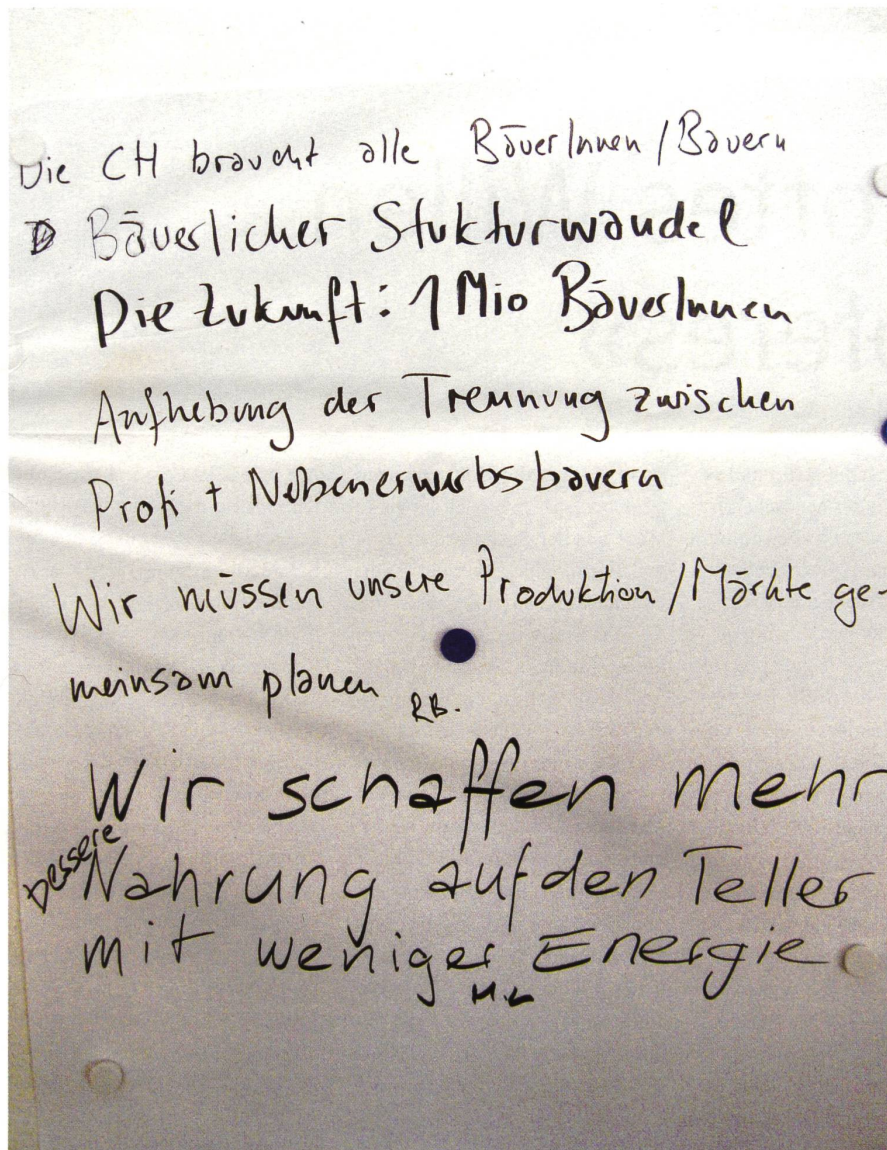 Die CH braucht alle BäuerInnen / Bauern
Bäuerlicher Stukturwandel
Die Zukunft: 1 Mio BäuerInnen
Aufhebung der Trennung zwischen
Profi + Nebenerwerbsbauern
Wir müssen unsere Produktion / Märkte ge-
meinsam planen RB.
Wir schaffen mehr
bessere
Nahrung auf den Teller
mit weniger Energie